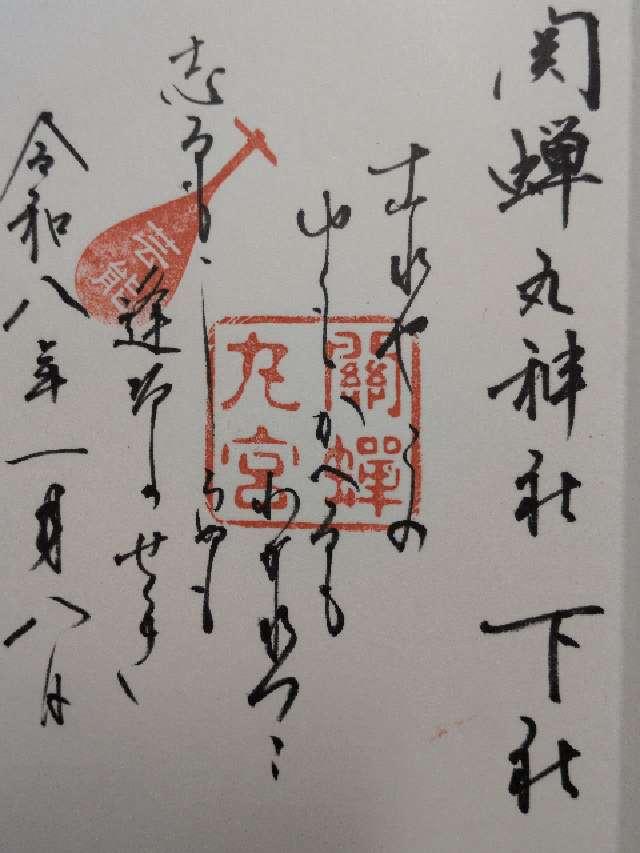 関蝉丸神社 下社
これやこの
ゆくもかへるも
わかれつゝ
志るもしらぬも
逢坂のせき
令和八年一月八日
關蟬
丸宮
芸能